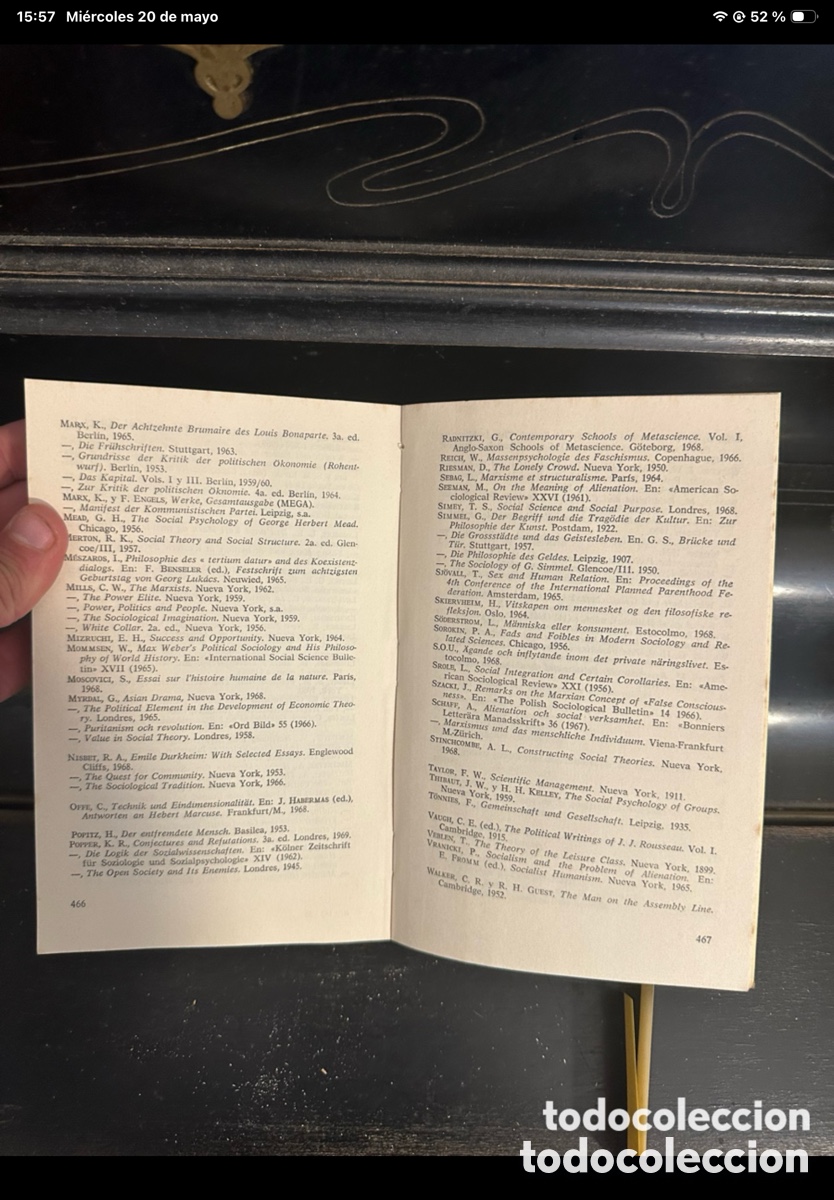 15:57 Miércoles 20 de mayo
52 %
MARX, K., Der Achtzehnte Brumaire des Louis Bonaparte. 3a. ed.
Berlin, 1965.
—, Die Frühschriften. Stuttgart, 1963.
—, Grundrisse der Kritik der politischen Okonomie (Rohent-
wurf). Berlin, 1953.
—, Das Kapital. Vols. I y III. Berlin, 1959/60.
—, Zur Kritik der politischen Öknomie. 4a. ed. Berlin, 1964.
MARX, K., y F. ENGELS, Werke, Gesamtausgabe (MEGA).
—, Manifest der Kommunistischen Partei. Leipzig, s.a.
MEAD, G. H., The Social Psychology of George Herbert Mead.
Chicago, 1956.
MERTON, R. K., Social Theory and Social Structure. 2a. ed. Glen-
coe/III, 1957.
MÉSZAROS, I., Philosophie des « tertium datur» and des Koexistenz-
dialogs. En: F. BENSELER (ed.), Festschrift zum achtzigsten
Geburtstag von Georg Lukács. Neuwied, 1965.
MILLS, C. W., The Marxists. Nueva York, 1962.
—, The Power Elite. Nueva York, 1959.
—, Power, Politics and People. Nueva York, s.a.
—, The Sociological Imagination. Nueva York, 1959.
—, White Collar. 2a. ed., Nueva York, 1956.
MIZRUCHI, E. H., Success and Opportunity. Nueva York, 1964.
MOMMSEN, W., Max Weber's Political Sociology and His Philoso-
phy of World History. En: «International Social Science Bulle-
tin» XVII (1965).
MOSCOVICI, S., Essai sur l'histoire humaine de la nature. Paris,
1968.
MYRDAL, G., Asian Drama, Nueva York, 1968.
—, The Political Element in the Development of Economic Theo-
ry. Londres, 1965.
—, Puritanism och revolution. En: «Ord Bild» 55 (1966).
—, Value in Social Theory. Londres, 1958.
NISBET, R. A., Emile Durkheim: With Selected Essays. Englewood
Cliffs, 1968.
—, The Quest for Community. Nueva York, 1953.
—, The Sociological Tradition. Nueva York, 1966.
OFFE, C., Technik und Eindimensionalität. En: J. HABERMAS (ed.),
Antworten an Hebert Marcuse. Frankfurt/M., 1968.
POPITZ, H., Der entfremdete Mensch. Basilea, 1953.
POPPER, K. R., Conjectures and Refutations. 3a. ed. Londres, 1969.
—, Die Logik der Sozialwissenschaften. En: «Kölner Zeitschrift
für Soziologie und Sozialpsychologie» XIV (1962).
—, The Open Society and Its Enemies. Londres, 1945.
466
RADNITZKI, G., Contemporary Schools of Metascience. Vol. I,
Anglo-Saxon Schools of Metascience. Göteborg, 1968.
REICH, W., Massenpsychologie des Faschismus. Copenhague, 1966.
RIESMAN, D., The Lonely Crowd. Nueva York, 1950.
SEBAG, L., Marxisme et structuralisme. París, 1964.
SEEMAN, M., On the Meaning of Alienation. En: «American So-
ciological Review» XXVI (1961).
SIMEY, T. S., Social Science and Social Purpose. Londres, 1968.
SIMMEL, G., Der Begriff und die Tragödie der Kultur. En: Zur
Philosophie der Kunst. Postdam, 1922.
—, Die Grossstädte und das Geistesleben. En. G. S., Brücke und
Tür. Stuttgart, 1957.
—, Die Philosophie des Geldes. Leipzig, 1907.
—, The Sociology of G. Simmel. Glencoe/III. 1950.
SJÖVALL, T., Sex and Human Relation. En: Proceedings of the
4th Conference of the International Planned Parenthood Fe-
deration. Amsterdam, 1965.
SKIERVHEIM, H., Vitskapen om mennesket og den filosofiske re-
fleksjon. Oslo, 1964.
SÖDERSTROM, L., Människa eller konsument. Estocolmo, 1968.
SOROKIN, P. A., Fads and Foibles in Modern Sociology and Re-
lated Sciences. Chicago, 1956.
S.O.U., Ägande och inflytande inom det private näringslivet. Es-
tocolmo, 1968.
SROLE, L., Social Integration and Certain Corollaries. En: «Ame-
rican Sociological Review» XXI (1956).
SZACKI, J., Remarks on the Marxian Concept of «False Conscious-
ness». En: «The Polish Sociological Bulletin» 14 1966).
SCHAFF, A., Alienation och social verksamhet. En: «Bonniers
Letterära Manadsskrift» 36 (1967).
—, Marxismus und das menschliche Individuum. Viena-Frankfurt
M.-Zürich.
STINCHCOMBE, A. L., Constructing Social Theories. Nueva York,
1968.
TAYLOR, F. W., Scientific Management. Nueva York, 1911.
THIBAUT, J. W., y H. H. KELLEY, The Social Psychology of Groups.
Nueva York, 1959.
TÖNNIES, F., Gemeinschaft und Gesellschaft. Leipzig, 1935.
VAUGH, C. E. (ed.), The Political Writings of J. J. Rousseau. Vol. I.
Cambridge, 1915.
VEBLEN, T., The Theory of the Leisure Class. Nueva York, 1899.
VRANICKI, P., Socialism and the Problem of Alienation. En:
E. FROMM (ed.), Socialist Humanism. Nueva York, 1965.
WALKER, C. R. y R. H. GUEST, The Man on the Assembly Line.
Cambridge, 1952.
467
todocoleccion
todocoleccion